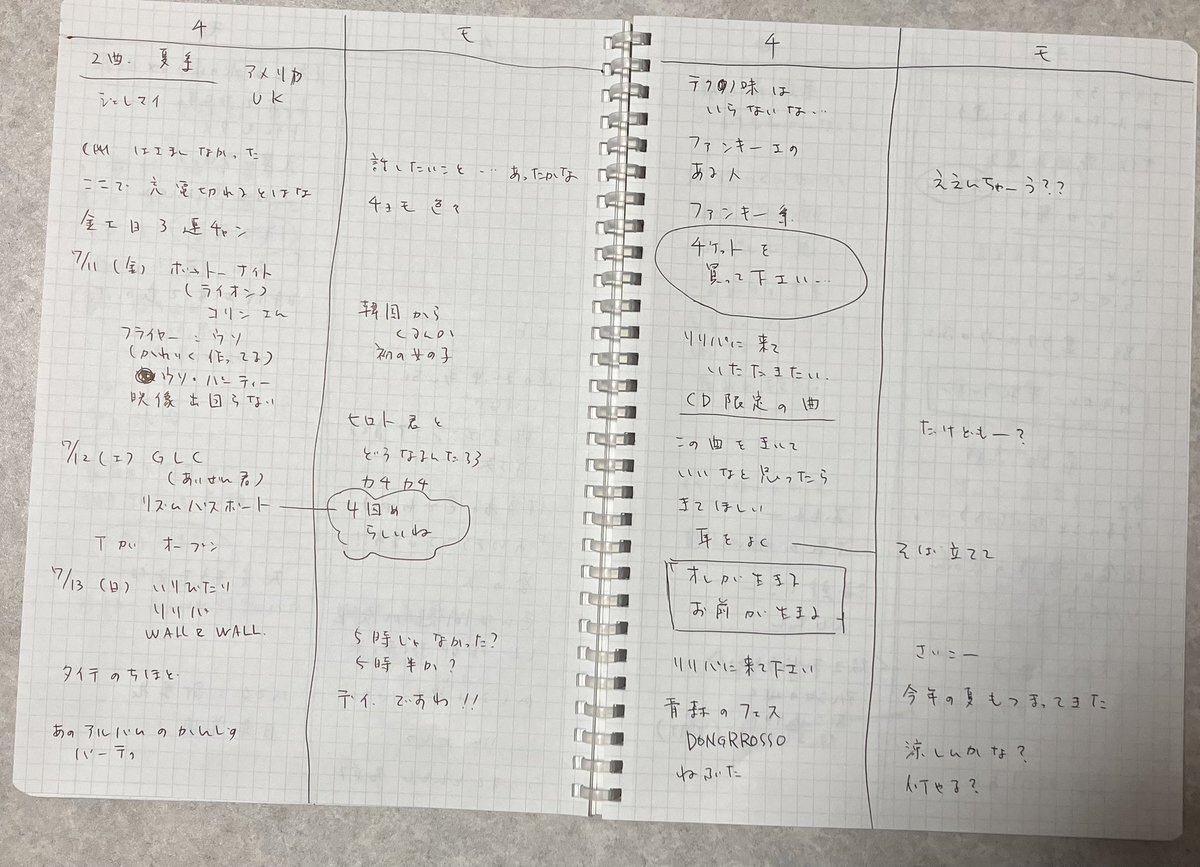 4
2曲. 夏系
アメリカ
ジェレマイ
UK
CM はさまんなかった
ここで 充電切れるとはな
金土日 3連チャン
7/11 (金) ホットーナイト
(ライオン)
コリンさん
フライヤー:ウソ
(かわいく作ってる)
ウソ・パーティー
映像出回らない
7/12 (土) GLC
(あいせん君)
リズムパスポート
Tがオープン
7/13 (日) いりびたり
リリパ
WALL & WALL.
タイテのちほど
あのアルバムのかんしゃ
パーティ
モ
許したいこと … あったかな
4もモ色?
韓国から
くるんか
初の女の子
ヒロト君と
どうなるんだろう
カチカチ
4回め
らしいね
5時じゃなかった?
5時半か?
デイですね!!
4
テクノ味は
いらないな…
ファンキーさの
ある人
ファンキー系
チケットを
買って下さい…
リリパに来て
いただきたい.
CD限定の曲
この曲をきいて
いいなと思ったら
きてほしい
耳をよく
オレが生きる
お前が生きる
リリパに来て下さい
青森のフェス
DONGRROSSO
ねぶた
モ
ええんちゃーう??
だけどもー?
そば立てて
さいこー
今年の夏もつまってきた
涼しいかな?